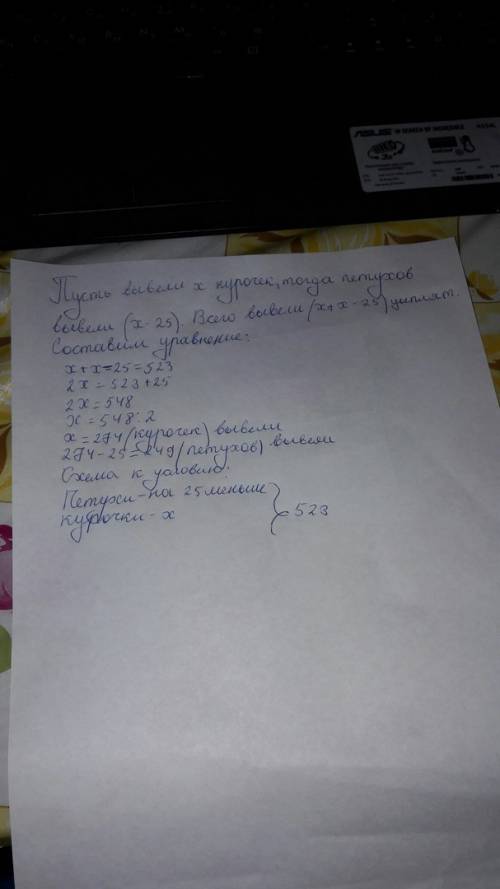 ASUS IN SEARCH OF INCREDIBLE
Пусть вывели x курочек, тогда петухов
вывели (x-25). Всего вывели (x+x-25) цыплят.
Составим уравнение:
x+x=25=523
2x=523+25
2x=548
x=548:2
x=274(курочек) вывели
274-25=249(петухов) вывели
Схема к условию:
Петухи-на 25 меньше
курочки-x
523